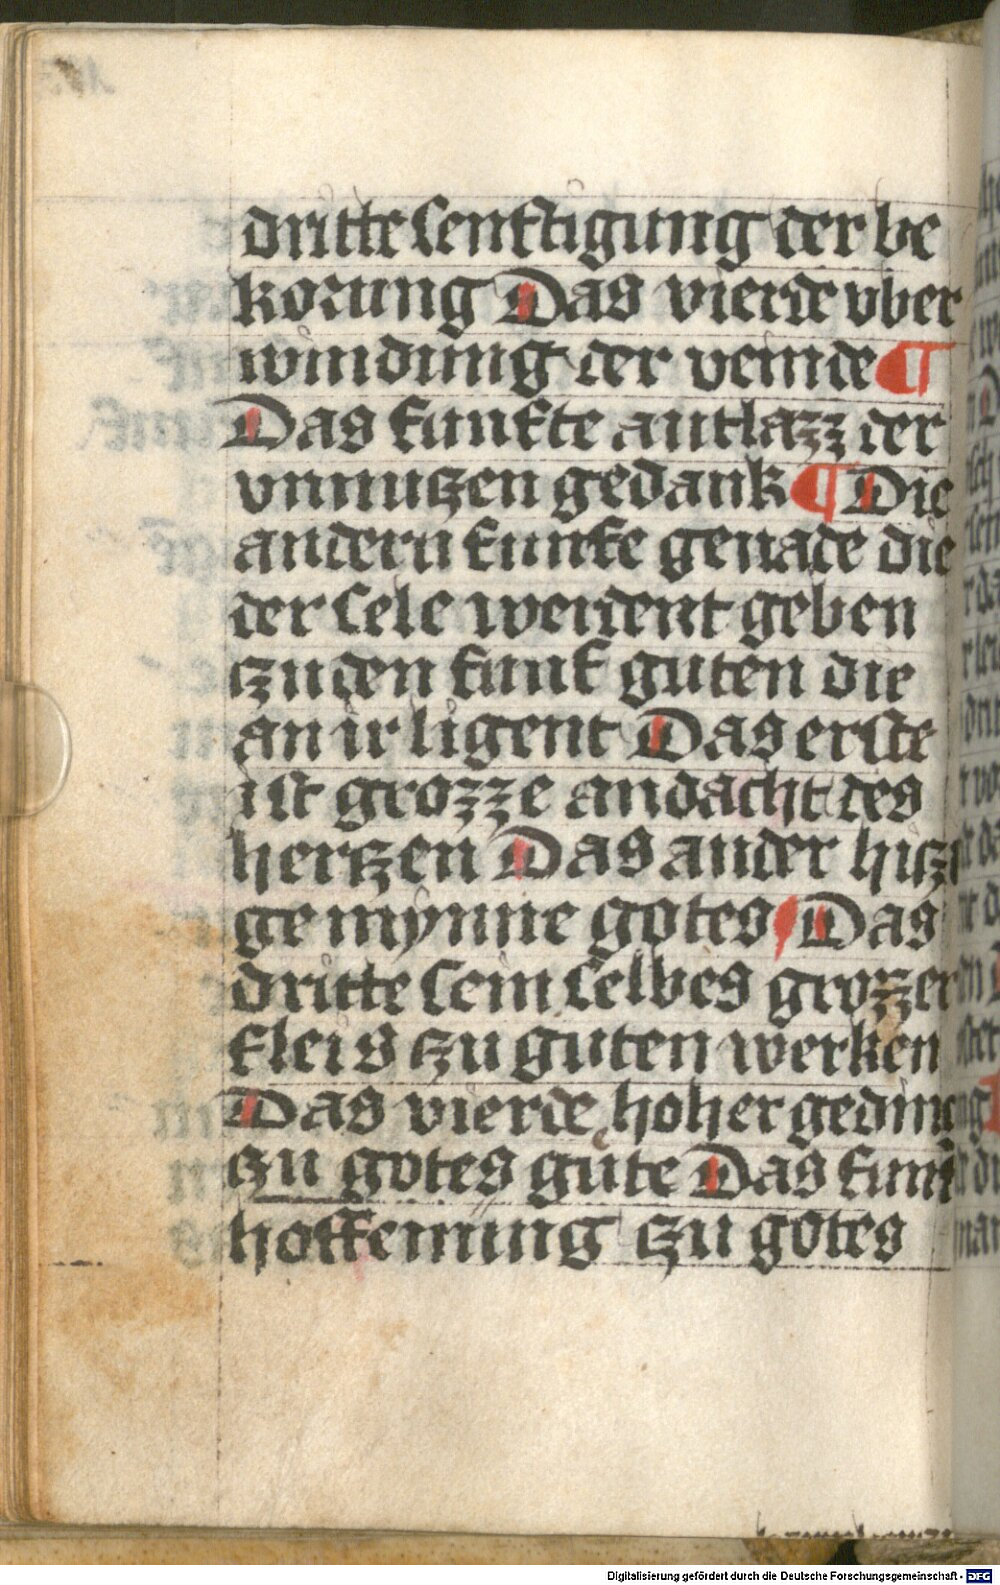 dritte senftigung der be
korung Das vierde vber
windung der veinde ¶
Das funfte antlazz der
vnnutzen gedank ¶ Die
andern funfe genade die
der sele werdent geben
zu den funf guten die
an ir ligent Das erste
ist grozze andacht des
hertzen Das ander hitzi
ge mynne gotes Das
dritte sein selbes grozzer
fleis zu guten werken
Das vierde hoher geding
zu gotes gůte Das funft
hoffenung zu gotes
Digitalisierung gefördert durch die Deutsche Forschungsgemeinschaft - DFG